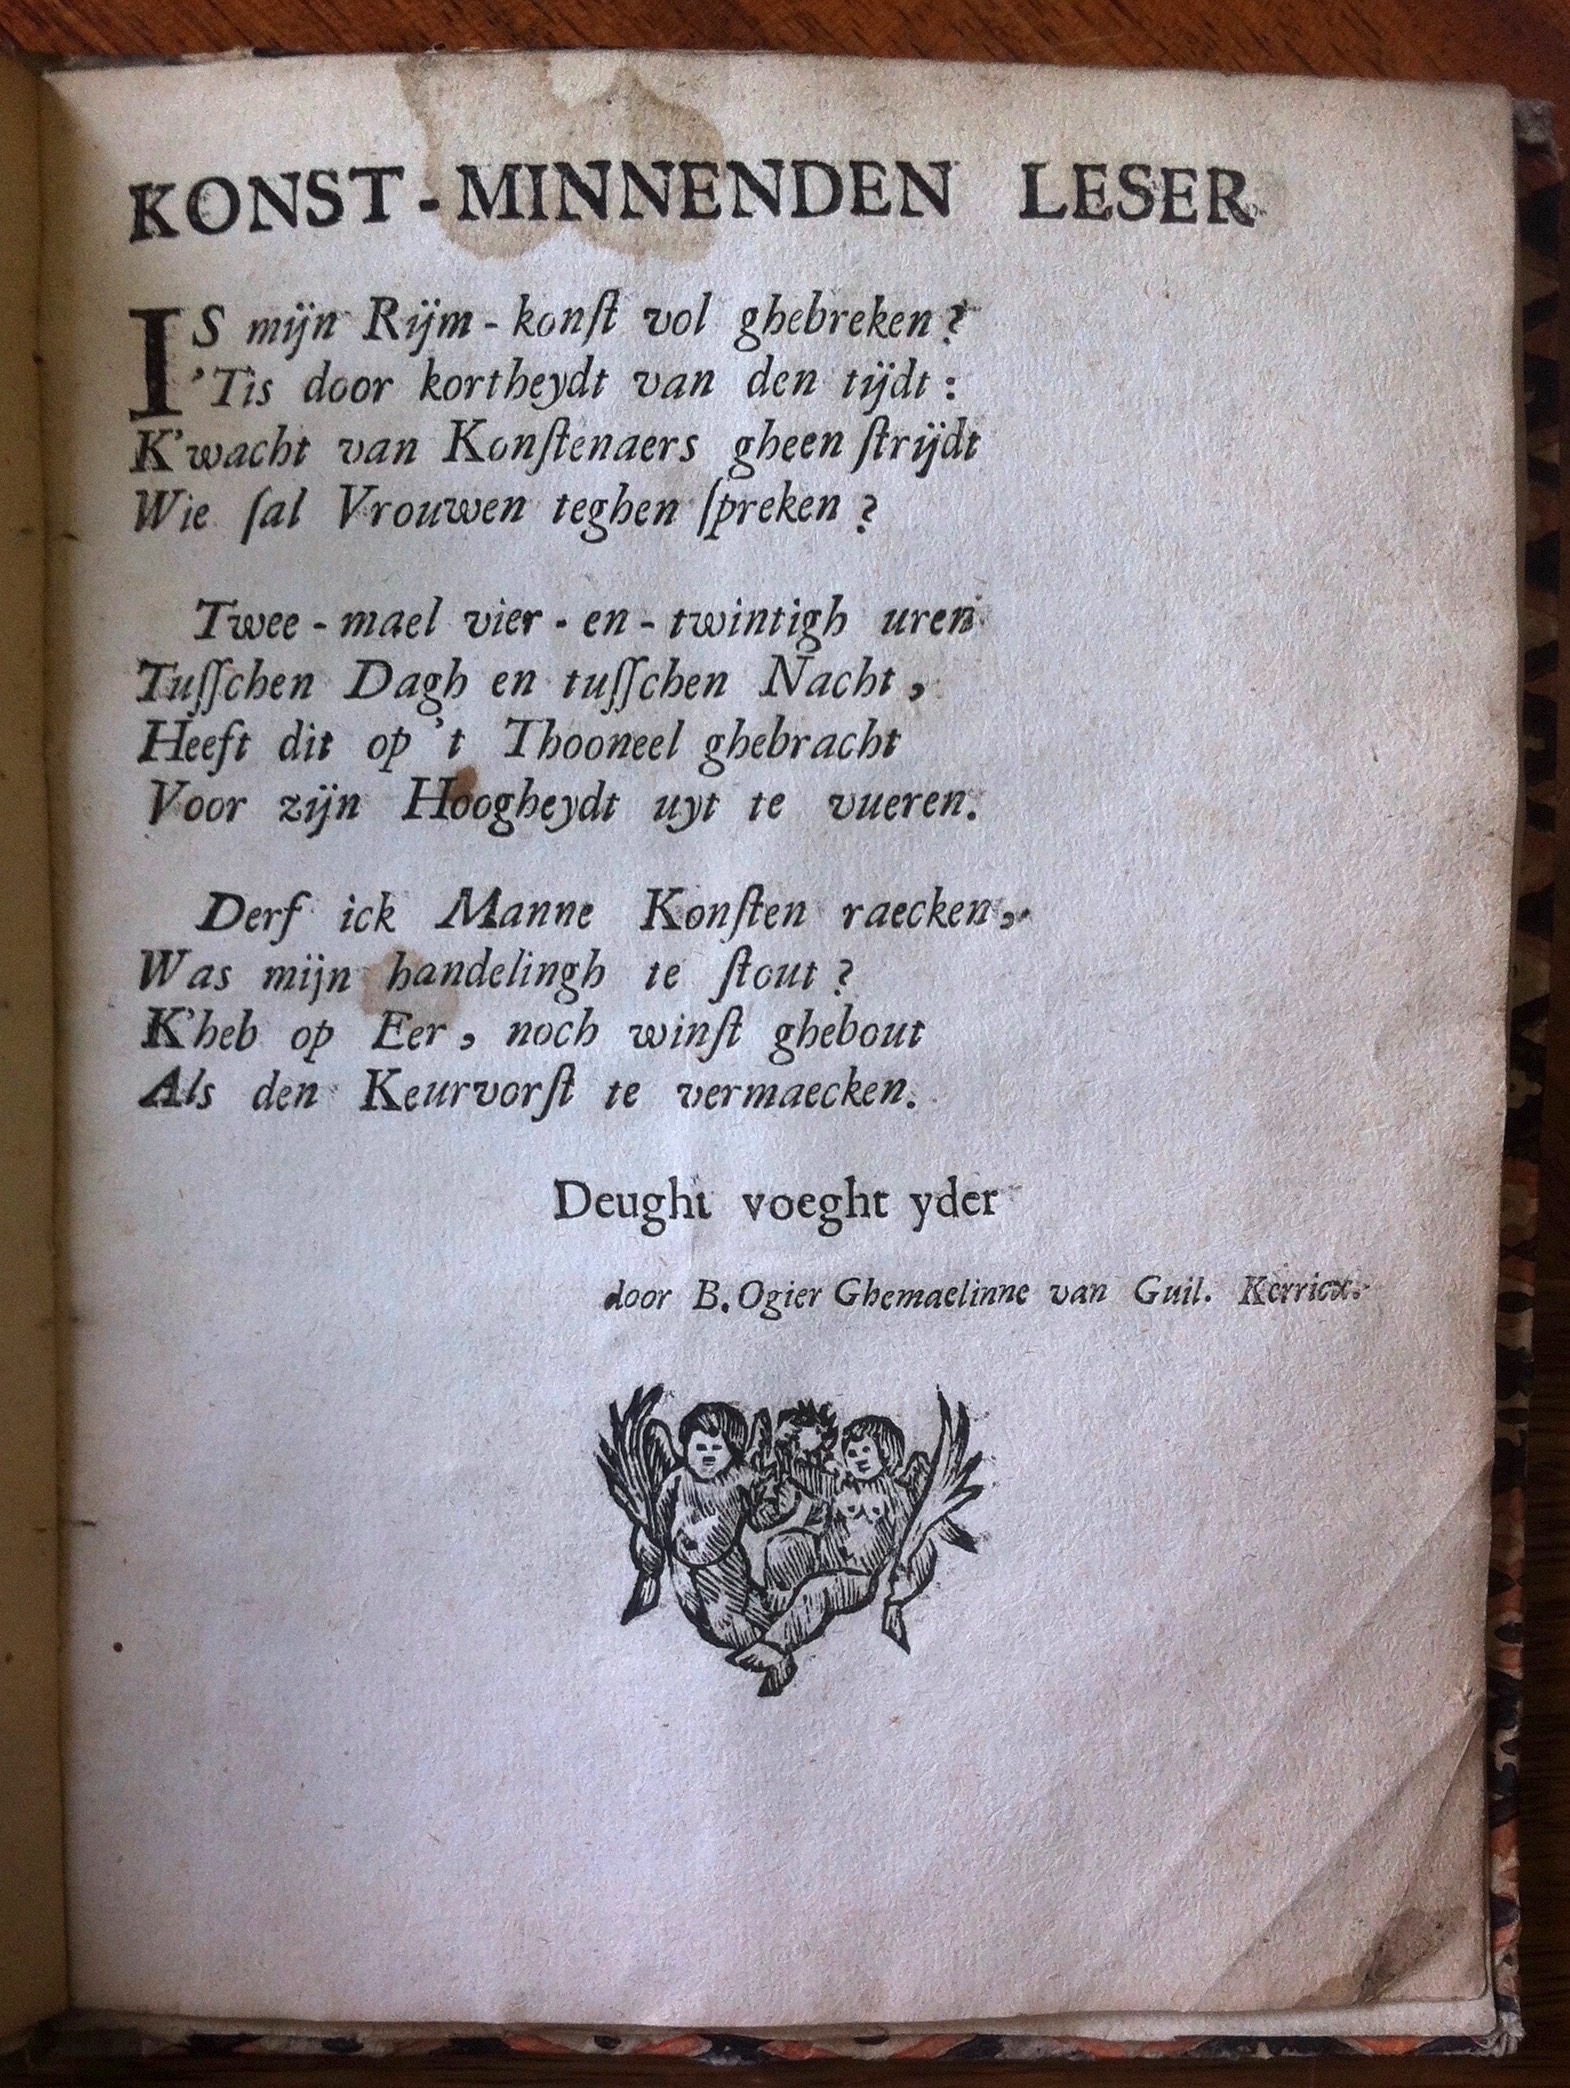 KONST-MINNENDEN LESER
IS mijn Rijm-konſt vol ghebreken?
'Tis door kortheydt van den tijdt:
K'wacht van Konſtenaers gheen ſtrijdt
Wie ſal Vrouwen teghen ſpreken?
Twee-mael vier-en-twintigh uren
Tuſſchen Dagh en tuſſchen Nacht,
Heeft dit op 't Thooneel ghebracht
Voor zijn Hoogheydt uyt te vueren.
Derf ick Manne Konſten raecken,
Was mijn handelingh te ſtout?
K'heb op Eer, noch winſt ghebout
Als den Keurvorſt te vermaecken.
Deught voeght yder
door B. Ogier Ghemaelinne van Guil. Kerricx.